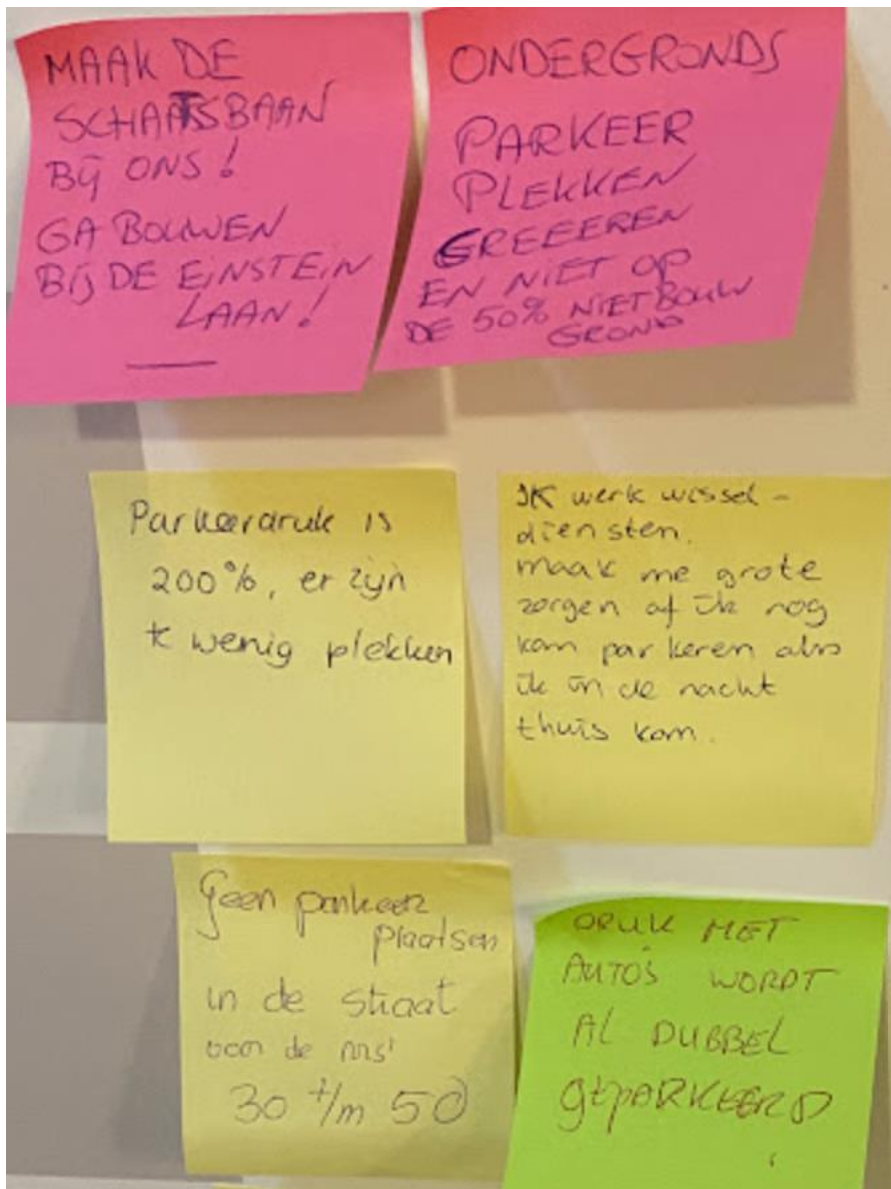 MAAK DE
SCHAATSBAAN
BIJ ONS!
GA BOUWEN
BIJ DE EINSTEIN
LAAN!
ONDERGRONDS
PARKEER
PLEKKEN
GREEEREN
EN NIET OP
DE 50% NIET BOUW
GROND
Parkeerdruk is
200%, er zijn
te wenig plekken
Ik werk wissel-
diensten.
maak me grote
zorgen of ik nog
kan parkeren als
ik in de nacht
thuis kom.
Geen parkeer
plaatsen
in de straat
voor de nrs'
30 t/m 50
DRUK MET
AUTO'S WORDT
AL DUBBEL
GEPARKEERD